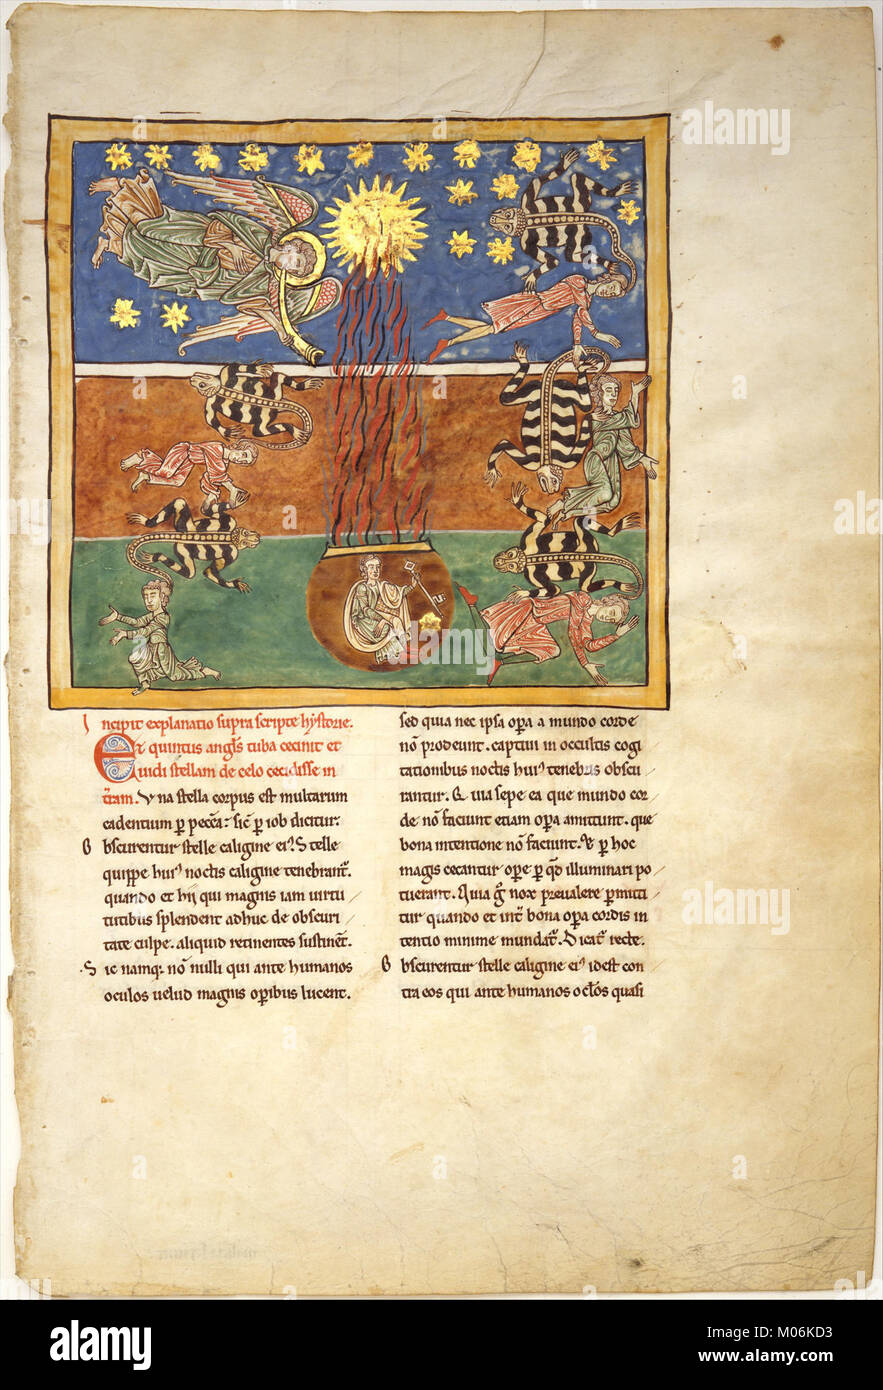 Incipit explanatio supra scripte hystorie.
Et quintus angl's tuba cecinit et
uidi stellam de celo cecidisse in
t'ram. Una stella corpus est multarum
cadentium p pecca. sic p iob dicitur.
Obscurentur stelle caligine ei'. Stelle
quippe hui' noctis caligine tenebrant'.
quando et hii qui magnis iam uirtu
tutibus splendent adhuc de obscuri
tate culpe. aliquid retinentes sustinet.
Sic namq. no nulli qui ante humanos
oculos uelud magnis opibus lucent.
sed quia nec ipsa opa a mundo corde
no prodeunt. captiui in occultis cogi
tationibus noctis hui' tenebris obscu
rantur. Et uia sepe ea que mundo cor
de no faciunt etiam opa amittunt. que
bona intentione no faciunt. Et p hoc
magis cecantur ope p qd illuminari po
tuerant. Quia g nox preualere pmitti
tur quando et int bona opa cordis in
tentio minime mundat'. Dicat' recte.
Obscurentur stelle caligine ei' id est con
tra eos qui ante humanos oclos quasi
alamy
www.alamy.com
Image ID: M06KD3